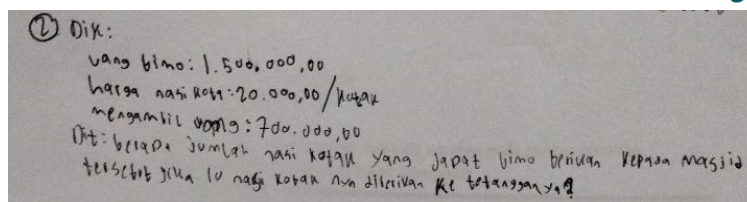 ② Dik:
uang bimo: 1.500.000,00
harga nasi kotak: 20.000,00/kotak
mengambil uang: 700.000,00
Dit: berapa jumlah nasi kotak yang dapat bimo berikan kepada masjid
tersebut jika 10 nasi kotak nya diberikan ke tetangganya?